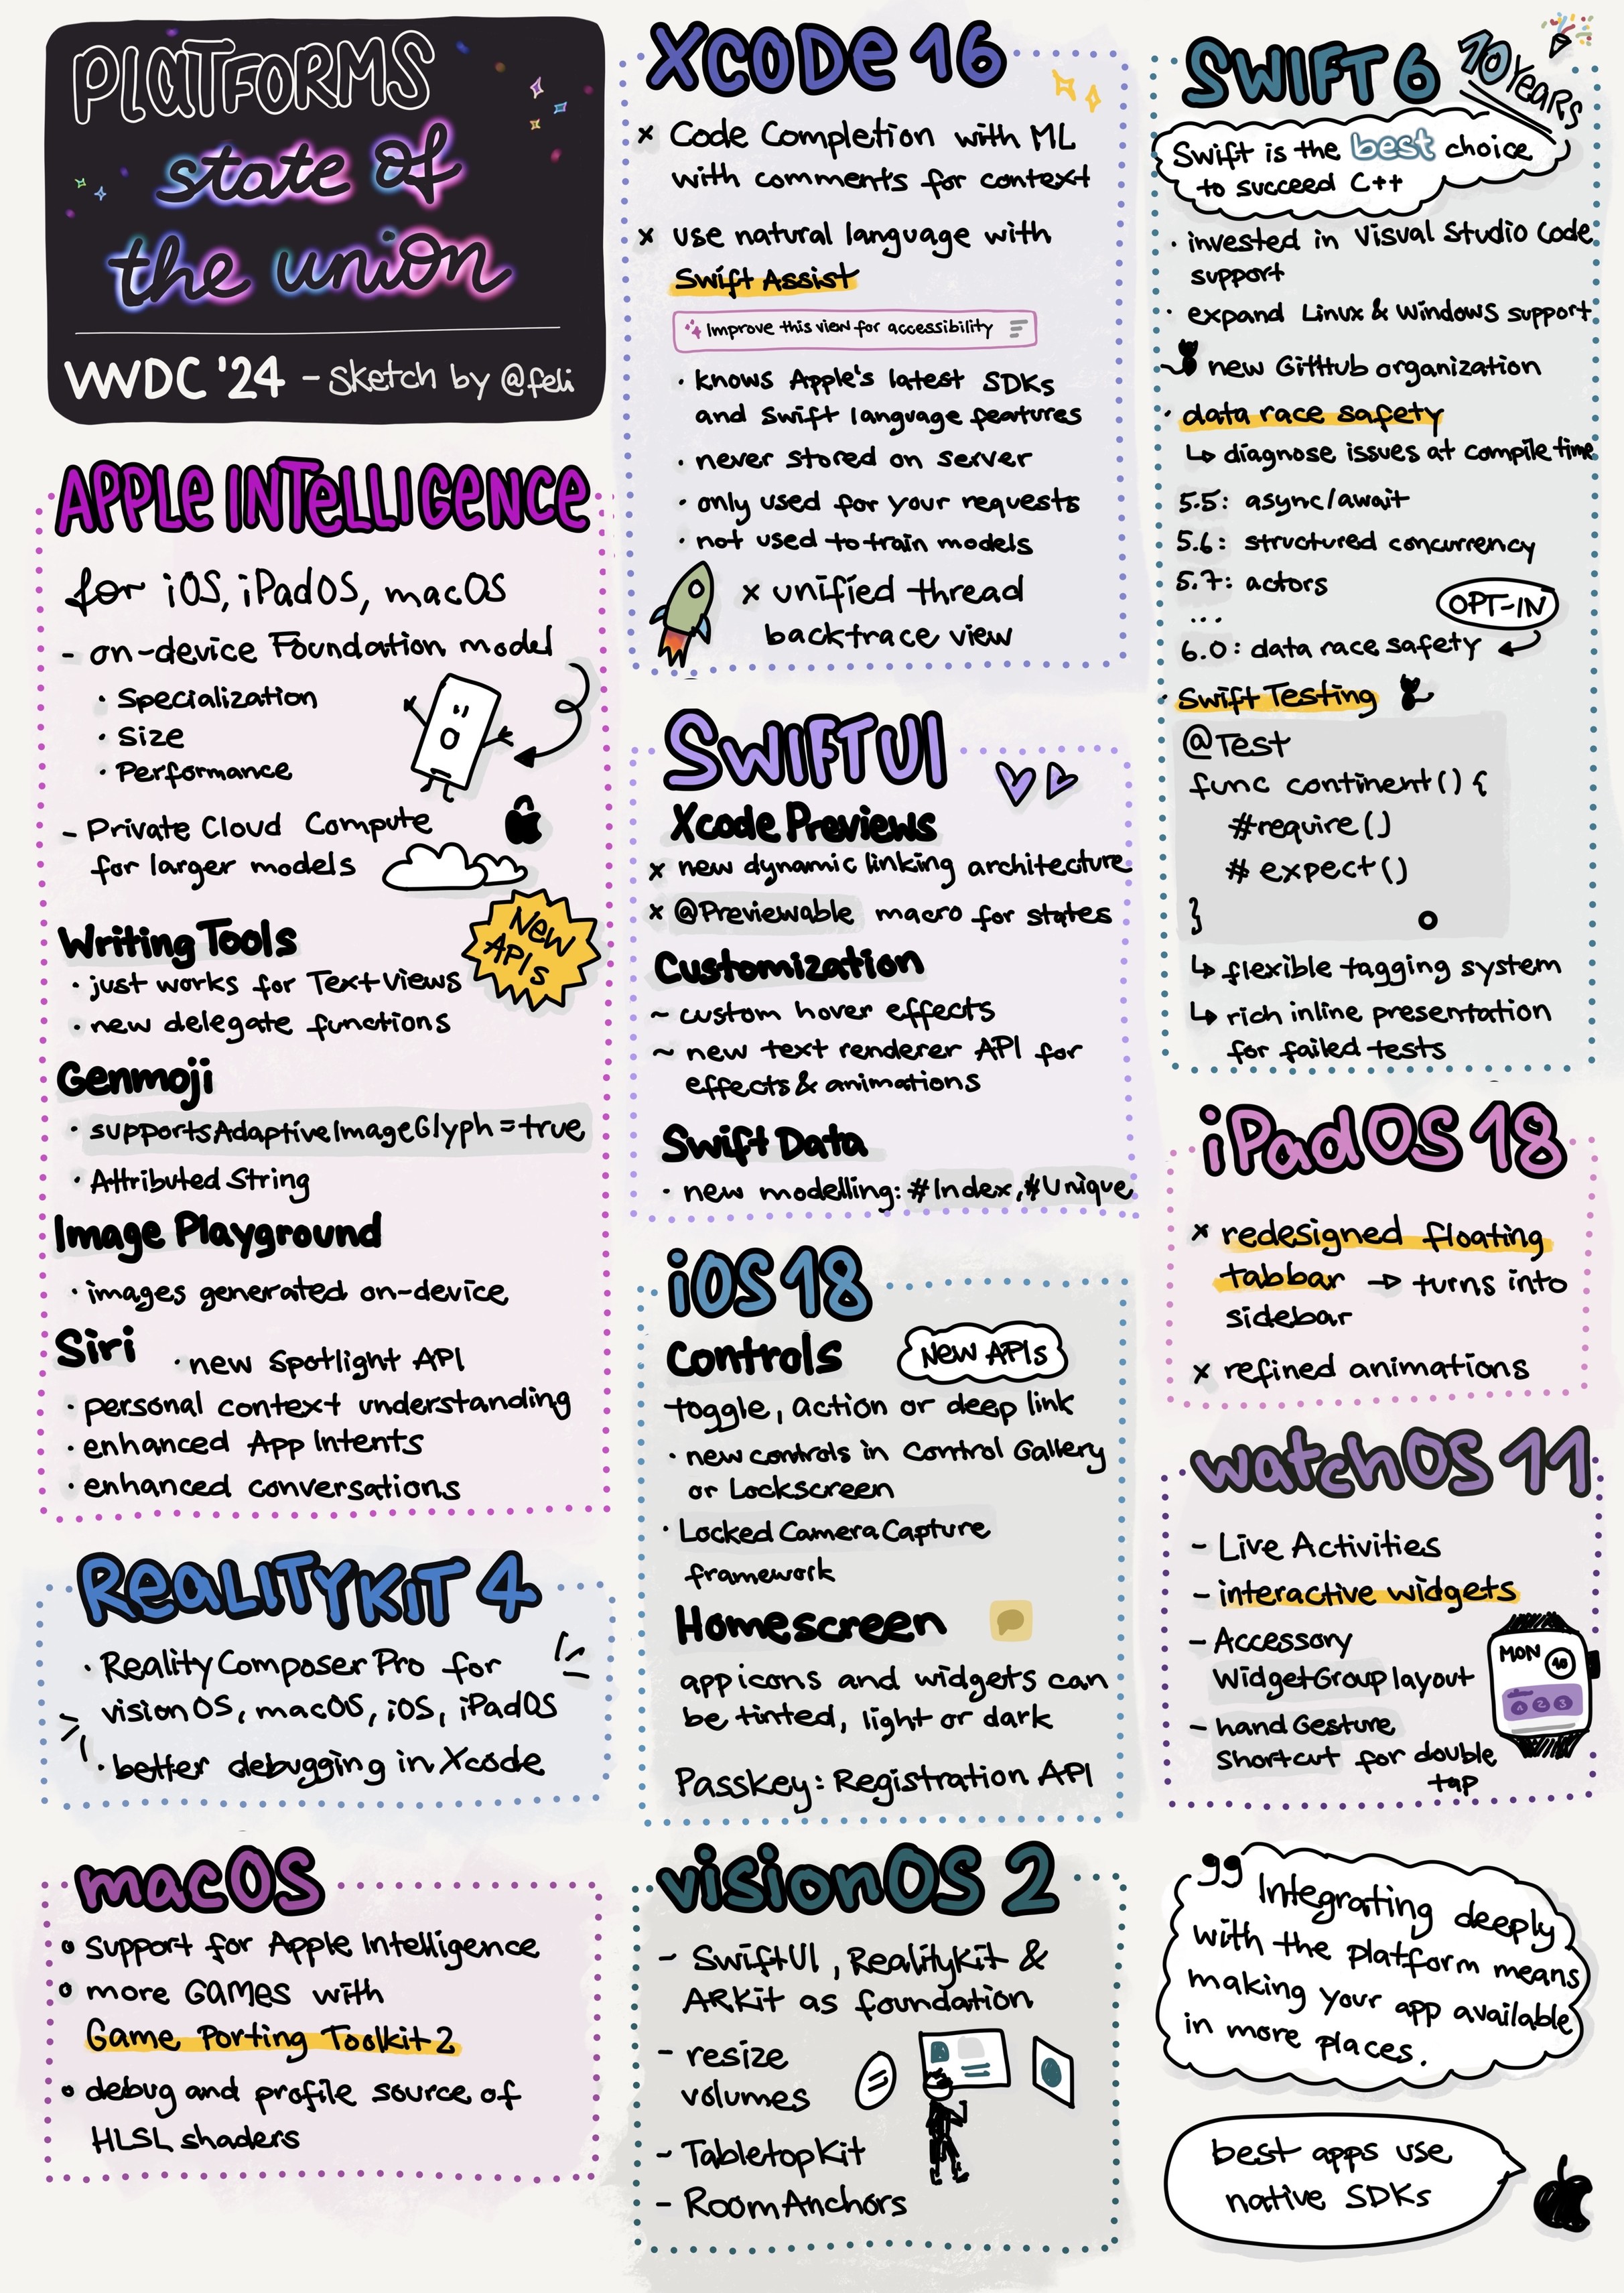 PLATFORMS
state of
the union
WWDC '24 - sketch by @feli
APPLE INTELLIGENCE
for iOS, iPadOS, macOS
- on-device Foundation model
· Specialization
· Size
· Performance
- Private Cloud Compute
for larger models
NEW
APIs
Writing Tools
· just works for TextViews
· new delegate functions
Genmoji
· supportsAdaptiveImageGlyph = true
· Attributed String
Image Playground
· images generated on-device
Siri
· new Spotlight API
· personal context understanding
· enhanced App Intents
· enhanced conversations
REALITYKIT 4
· Reality Composer Pro for
visionOS, macOS, iOS, iPadOS
· better debugging in Xcode
macOS
• support for Apple Intelligence
• more GAMES with
Game Porting Toolkit 2
• debug and profile source of
HLSL shaders
XCODE 16
x Code Completion with ML
with comments for context
x use natural language with
Swift Assist
Improve this view for accessibility
· knows Apple's latest SDKs
and Swift language features
· never stored on server
· only used for your requests
· not used to train models
x unified thread
backtrace view
SWIFTUI
Xcode Previews
x new dynamic linking architecture
x @Previewable macro for states
Customization
~ custom hover effects
~ new text renderer API for
effects & animations
Swift Data
· new modelling: #Index, #Unique
iOS 18
Controls
New APIs
toggle, action or deep link
· new controls in Control Gallery
or Lockscreen
· Locked Camera Capture
framework
Homescreen
app icons and widgets can
be tinted, light or dark
Passkey: Registration API
visionOS 2
- SwiftUI, RealityKit &
ARKit as foundation
- resize
volumes
- TabletopKit
- RoomAnchors
SWIFT 6
10 YEARS
Swift is the best choice
to succeed C++
· invested in Visual Studio Code
support
· expand Linux & Windows support
new GitHub organization
· data race safety
↳ diagnose issues at compile time
5.5: async/await
5.6: structured concurrency
5.7: actors
...
OPT-IN
6.0: data race safety
· Swift Testing
@Test
func continent() {
#require()
#expect()
}
↳ flexible tagging system
↳ rich inline presentation
for failed tests
iPadOS 18
x redesigned floating
tabbar → turns into
sidebar
x refined animations
watchOS 11
- Live Activities
- interactive widgets
- Accessory
WidgetGroup layout
- hand Gesture
Shortcut for double
tap
MON 10
1 2 3
" Integrating deeply
with the platform means
making your app available
in more places.
best apps use
native SDKs